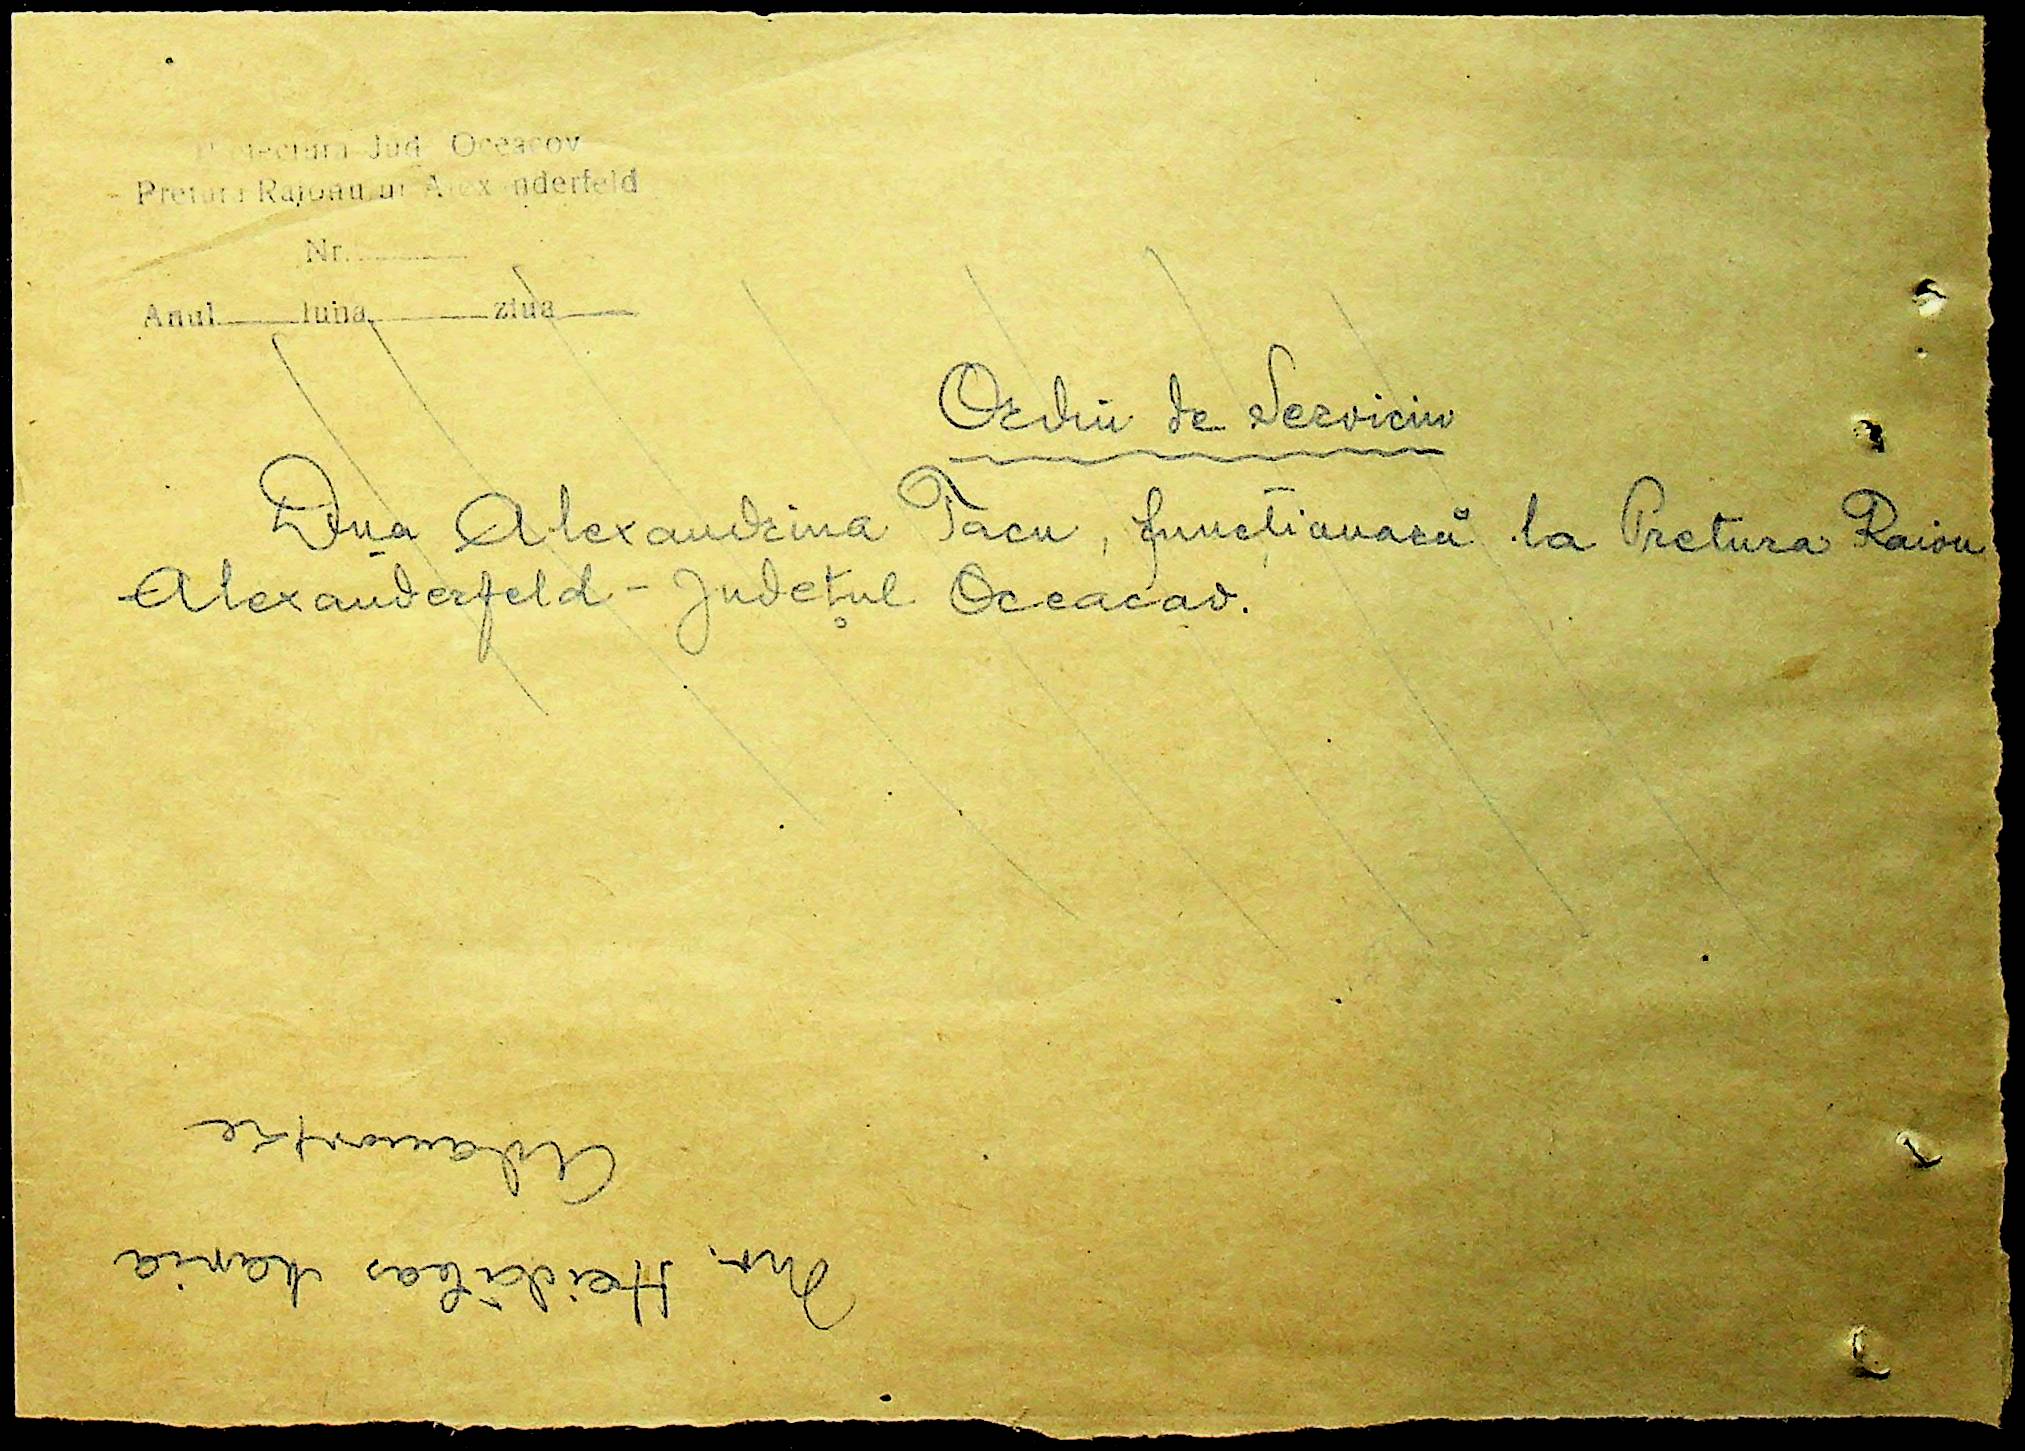 Prefectura Jud. Oceacov
Pretura Raionului Alexanderfeld
Nr.
Anul luna ziua
Ordin de Serviciu
Dna Alexandrina Tacu, funcționară la Pretura Raion
Alexanderfeld - Județul Oceacov.
Inv. Heidălas Maria